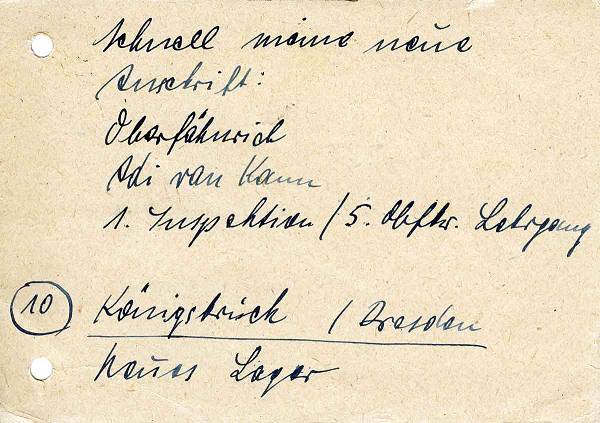 Schnell meine neue
Anschrift:
Oberfähnrich
Adi van Kann
1. Inspektion / 5. Obftw. Lehrgang
10 Königsbrück / Dresden
Neues Lager